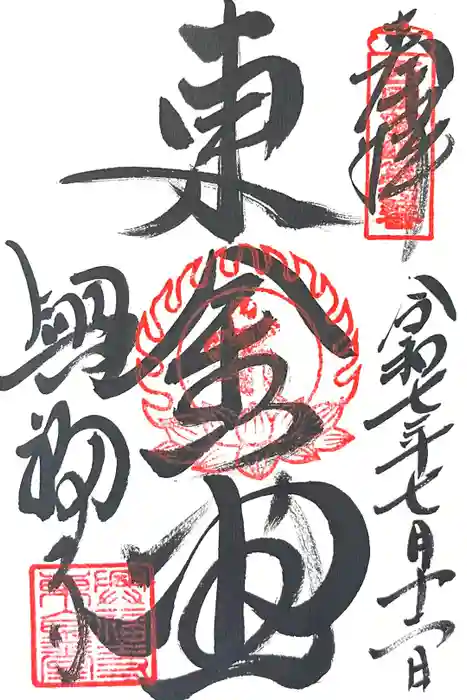 奉拝
令和七年七月十一日
東金堂
興福寺